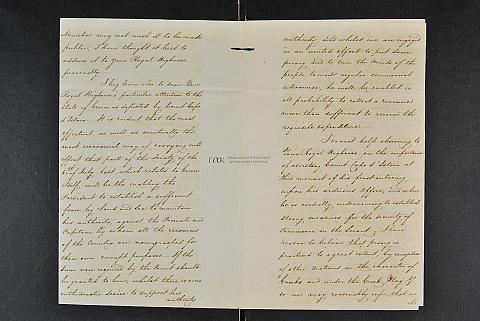 Ministers may not wish it to be made
public, I have thought it best to
address it to Your Royal Highness
personally.
I beg leave also to draw Your
Royal Highness's particular attention to the
state of Greece as depicted by Count Capo
d'Istria. It is evident that the most
efficient, as well as eventually the
most economical way of carrying into
effect that part of the Treaty of the
6th of July last, which relates to Greece
itself, will be the enabling the
President to establish a sufficient
force by Land and Sea to maintain
his authority, against the Primates and
Captains by whom all the resources
of the Country are monopolized for
their own corrupt purposes. If the
sum now required by the Count should
be granted to him, whilst there is an
enthusiastic desire to support his
authority
authority, and whilst we are engaged
in an united effort to put down
piracy and to turn the minds of the
people towards regular commercial
intercourse, he will be enabled in
all probability to collect a revenue
more than sufficient to cover the
requisite expenditure.
I cannot help observing to
Your Royal Highness, on the importance
of assisting Count Capo d'Istria at
this moment of his first entering
upon his arduous Office, and when
he is cordially endeavouring to establish
strong measures for the security of
Commerce in the Levant. I have
reason to believe that piracy is
practised to a great extent, by
of other Nations in the character of
Greeks and under the Greek Flag. If
so we may reasonably infer, that
ΓΑΚ